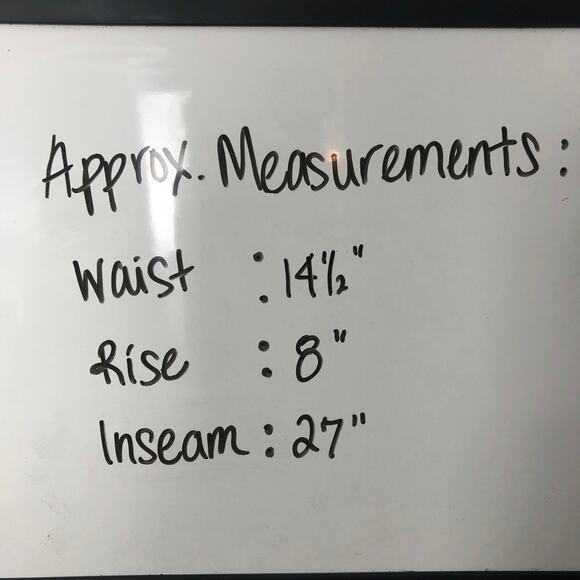 Approx. Measurements:
Waist : 14½"
Rise : 8"
Inseam : 27"